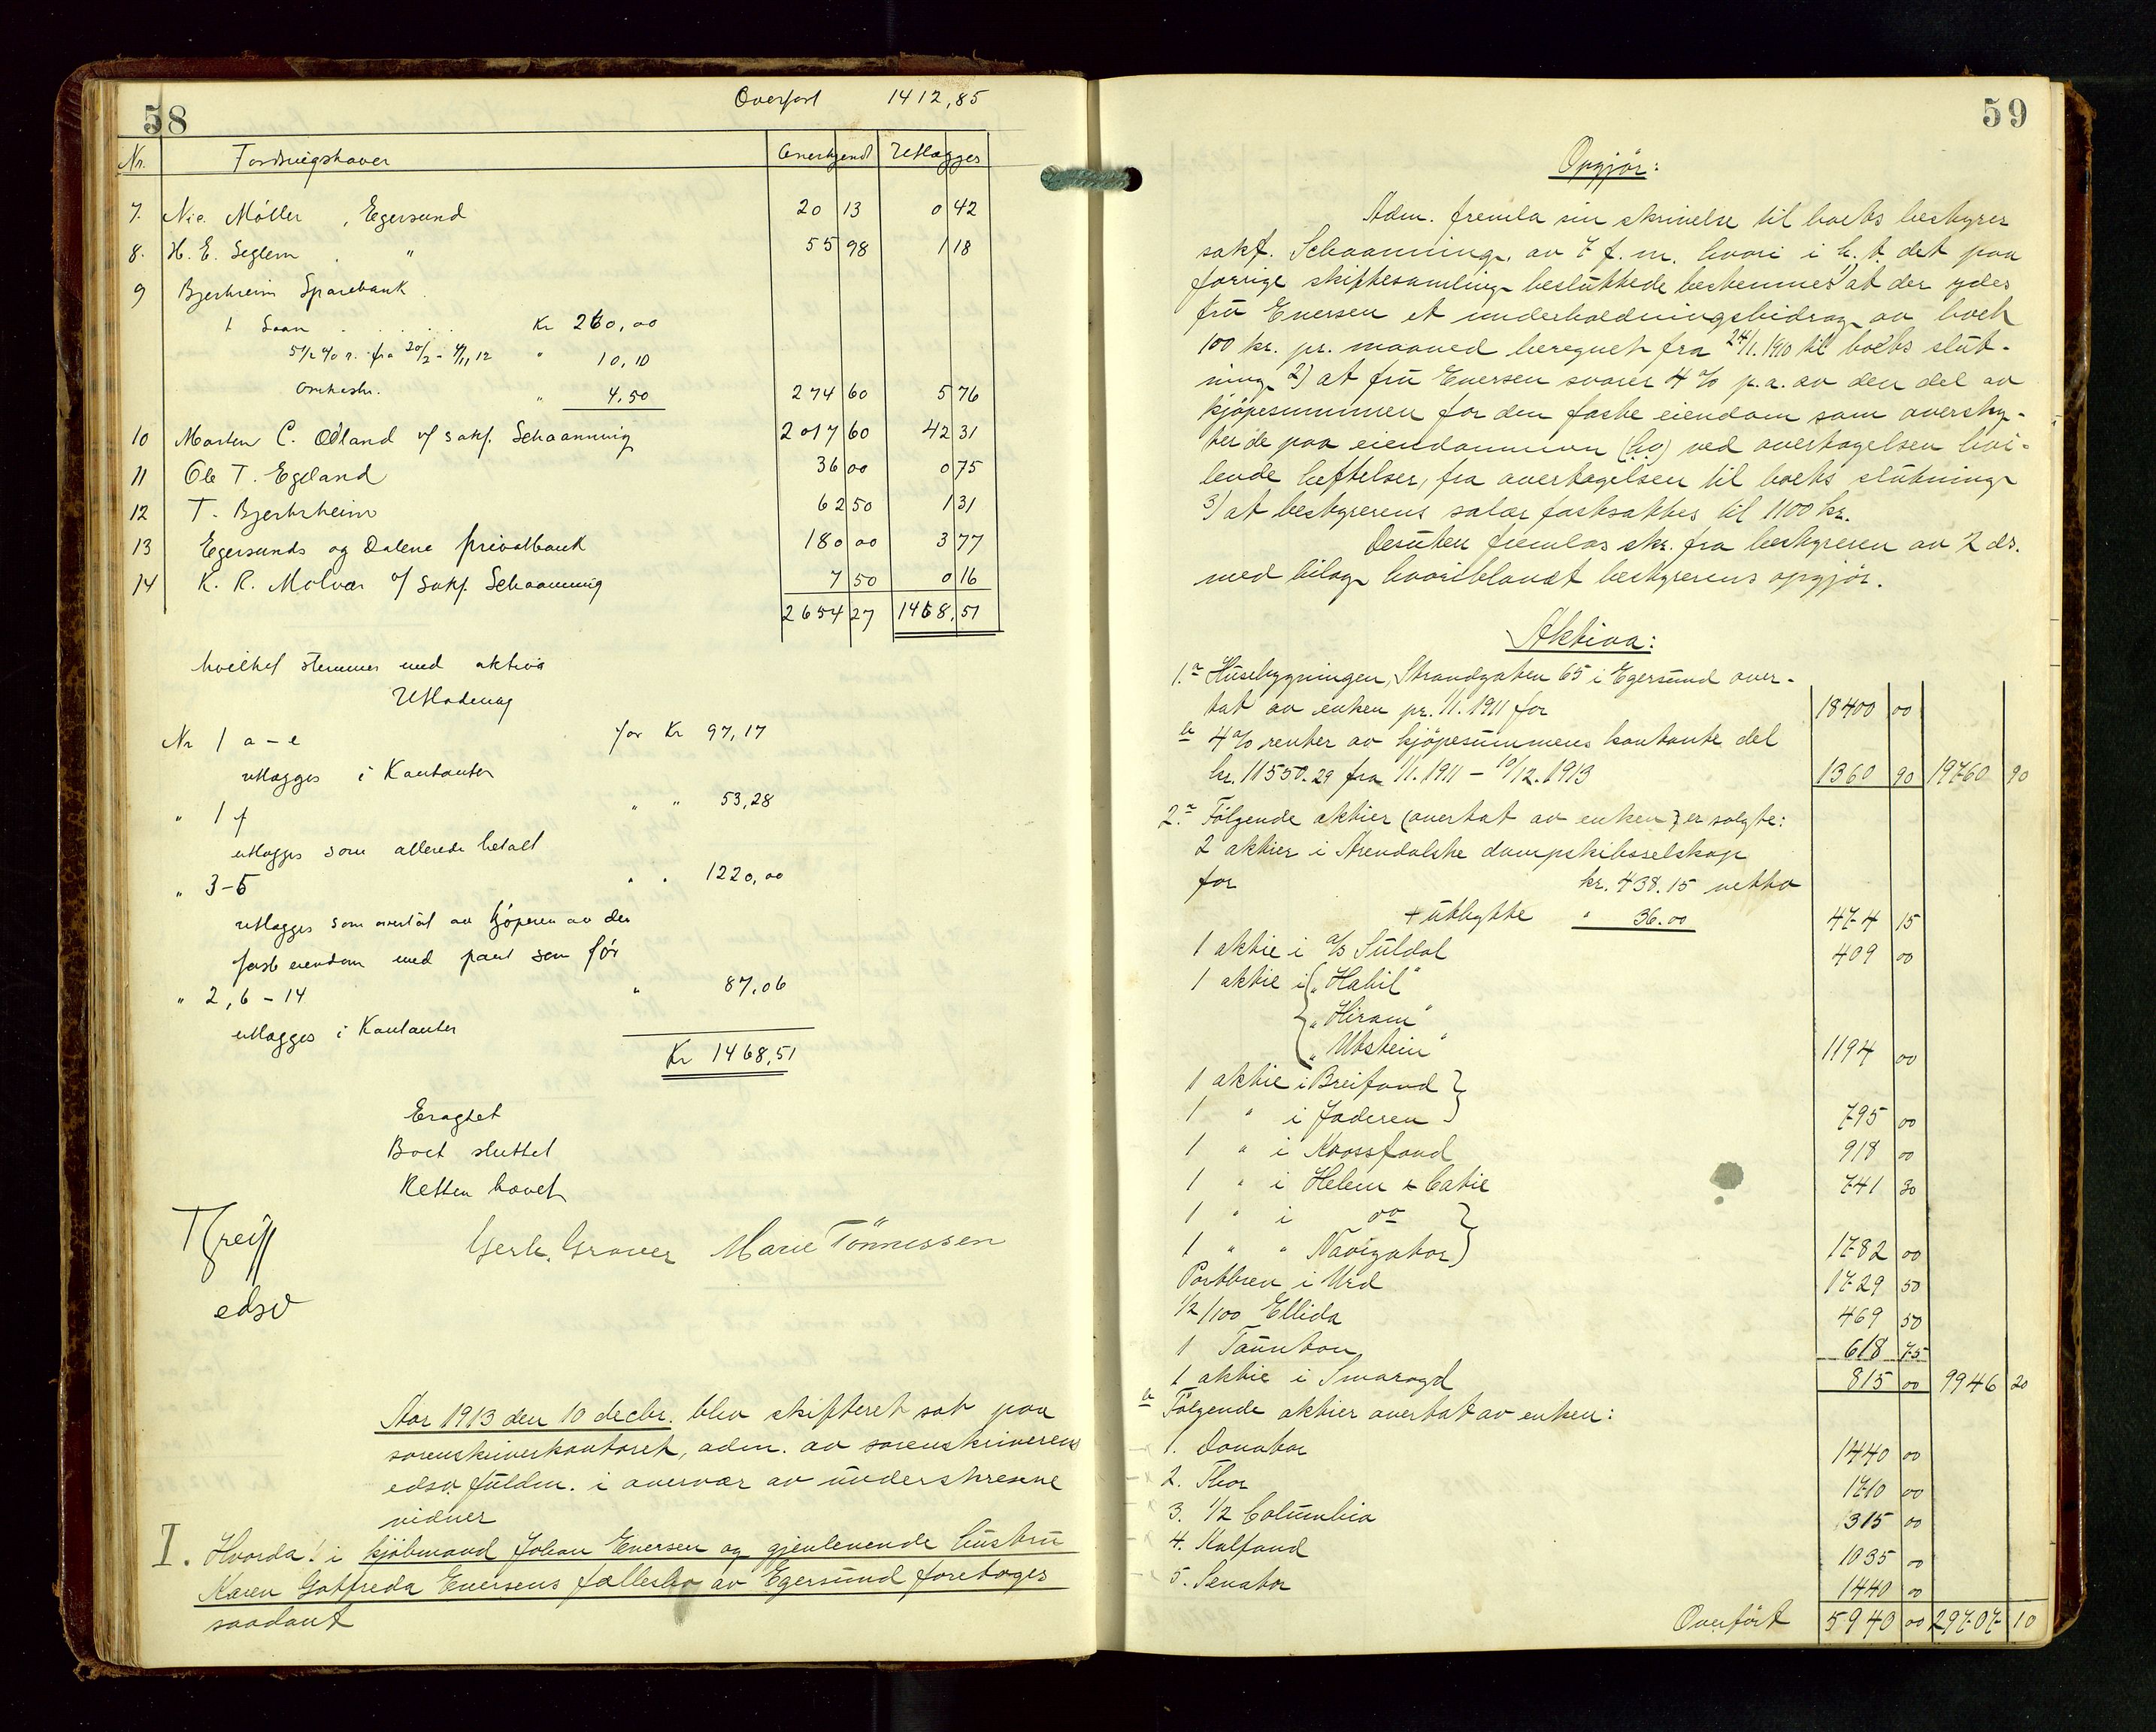 58
Overført 1412,85
Nr. Fordringshaver Anerkjendt Utlægges
7. Nic. Møller, Egersund 20 13 0 42
8. H. E. Seglem " 55 98 1 18
9 Bjerkreim Sparebank
1 Laan . . . . . Kr 260,00
5½ % r. fra 20/2 - 4/11, 12 " 10,10
" 4,50 274 60 5 76
10 Morten C. Ødland v/ sakf. Schaanning 2017 60 42 31
11 Ole T. Egeland 36 00 0 75
12 T. Bjerkreim 62 50 1 31
13 Egersunds og Dalene privatbank 180 00 3 77
14 K. R. Molvær v/ sakf. Schaanning 7 50 0 16
2654 27 1468,51
hvilket stemmer med aktiva
Utlodning
Nr 1 a - e for Kr 97,17
utlægges i Kontanter
" 1 f " " 53,28
utlægges som allerede betalt
" 3-5 " " 1220,00
utlægges som overtat av kjøperen av den
faste eiendom med pant som før
" 2, 6 - 14 " 87,06
utlægges i Kontanter
Kr 1468,51
Eragtet
Boet sluttet
Retten hævet
T Greiff
edsv
Gerh. Grøver Marie Tönnessen
Aar 1913 den 10 decbr. blev skifteret sat paa
sorenskriverkontoret, adm. av sorenskriverens
edsv. fuldm. i overvær av underskrevne
vidner
I. Hvorda! i kjøbmand Johan Eversen og gjenlevende hustru
Karen Gotfreda Eversens fællesbo av Egersund foretoges
saadant
59
Opgjör:
Adm. fremla sin skrivelse til boets bestyrer
sakf. Schaanning, av 7 f. m. hvori i h. t. det paa
forrige skiftesamling besluttede bestemmes 1) at der ydes
fru Eversen et underholdningsbidrag av boet
100 kr. pr. maaned beregnet fra 24/1.1910 til boets slut-
ning 2) at fru Eversen svarer 4 % p.a. av den del av
kjöpesummen for den faste eiendom som oversky-
ter de paa eiendommen ved overtagelsen hvi-
lende heftelser, fra overtagelsen til boets slutning
3) at bestyrerens salær fastsættes til 1100 kr.
Desuten fremlas skr. fra bestyreren av 2 ds.
med bilag hvoriblandt bestyrerens opgjör.
Aktiva:
1. a Husebygningen, Strandgaten 65 i Egersund over-
tat av enken pr. 1/1.1911 for 18400 00
b 4 % renter av kjöpesummens kontante del
kr. 11550.29 fra 1/1.1911 - 10/12.1913 1360 90 19760 90
2. a Fölgende aktier (overtat av enken) er solgte:
2 aktier i Arendalske dampskibsselskap
for kr. 438.15 netto
+ utbytte " 36.00 474 15
1 aktie i a/s Suldal 409 00
1 aktie i "Habil"
"Hiram"
"Utstein" 1194 00
1 aktie i Breifond
1 " i Jæderen 795 00
1 " i Krossfond 918 00
1 " i Helem & Catie 741 30
1 " i do
1 " " Navigator 1782 00
Partbrev i Urd 1729 50
½/100 Ellida 469 50
1 Taunton 618 75
1 aktie i Smaragd 815 00 9946 20
b Fölgende aktier overtat av enken:
1. Donator 1440 00
2. Thor 1710 00
3. 1/2 Columbia 315 00
4. Kalfond 1035 00
5. Senator 1440 00
Overfört 5940 00 29707 10